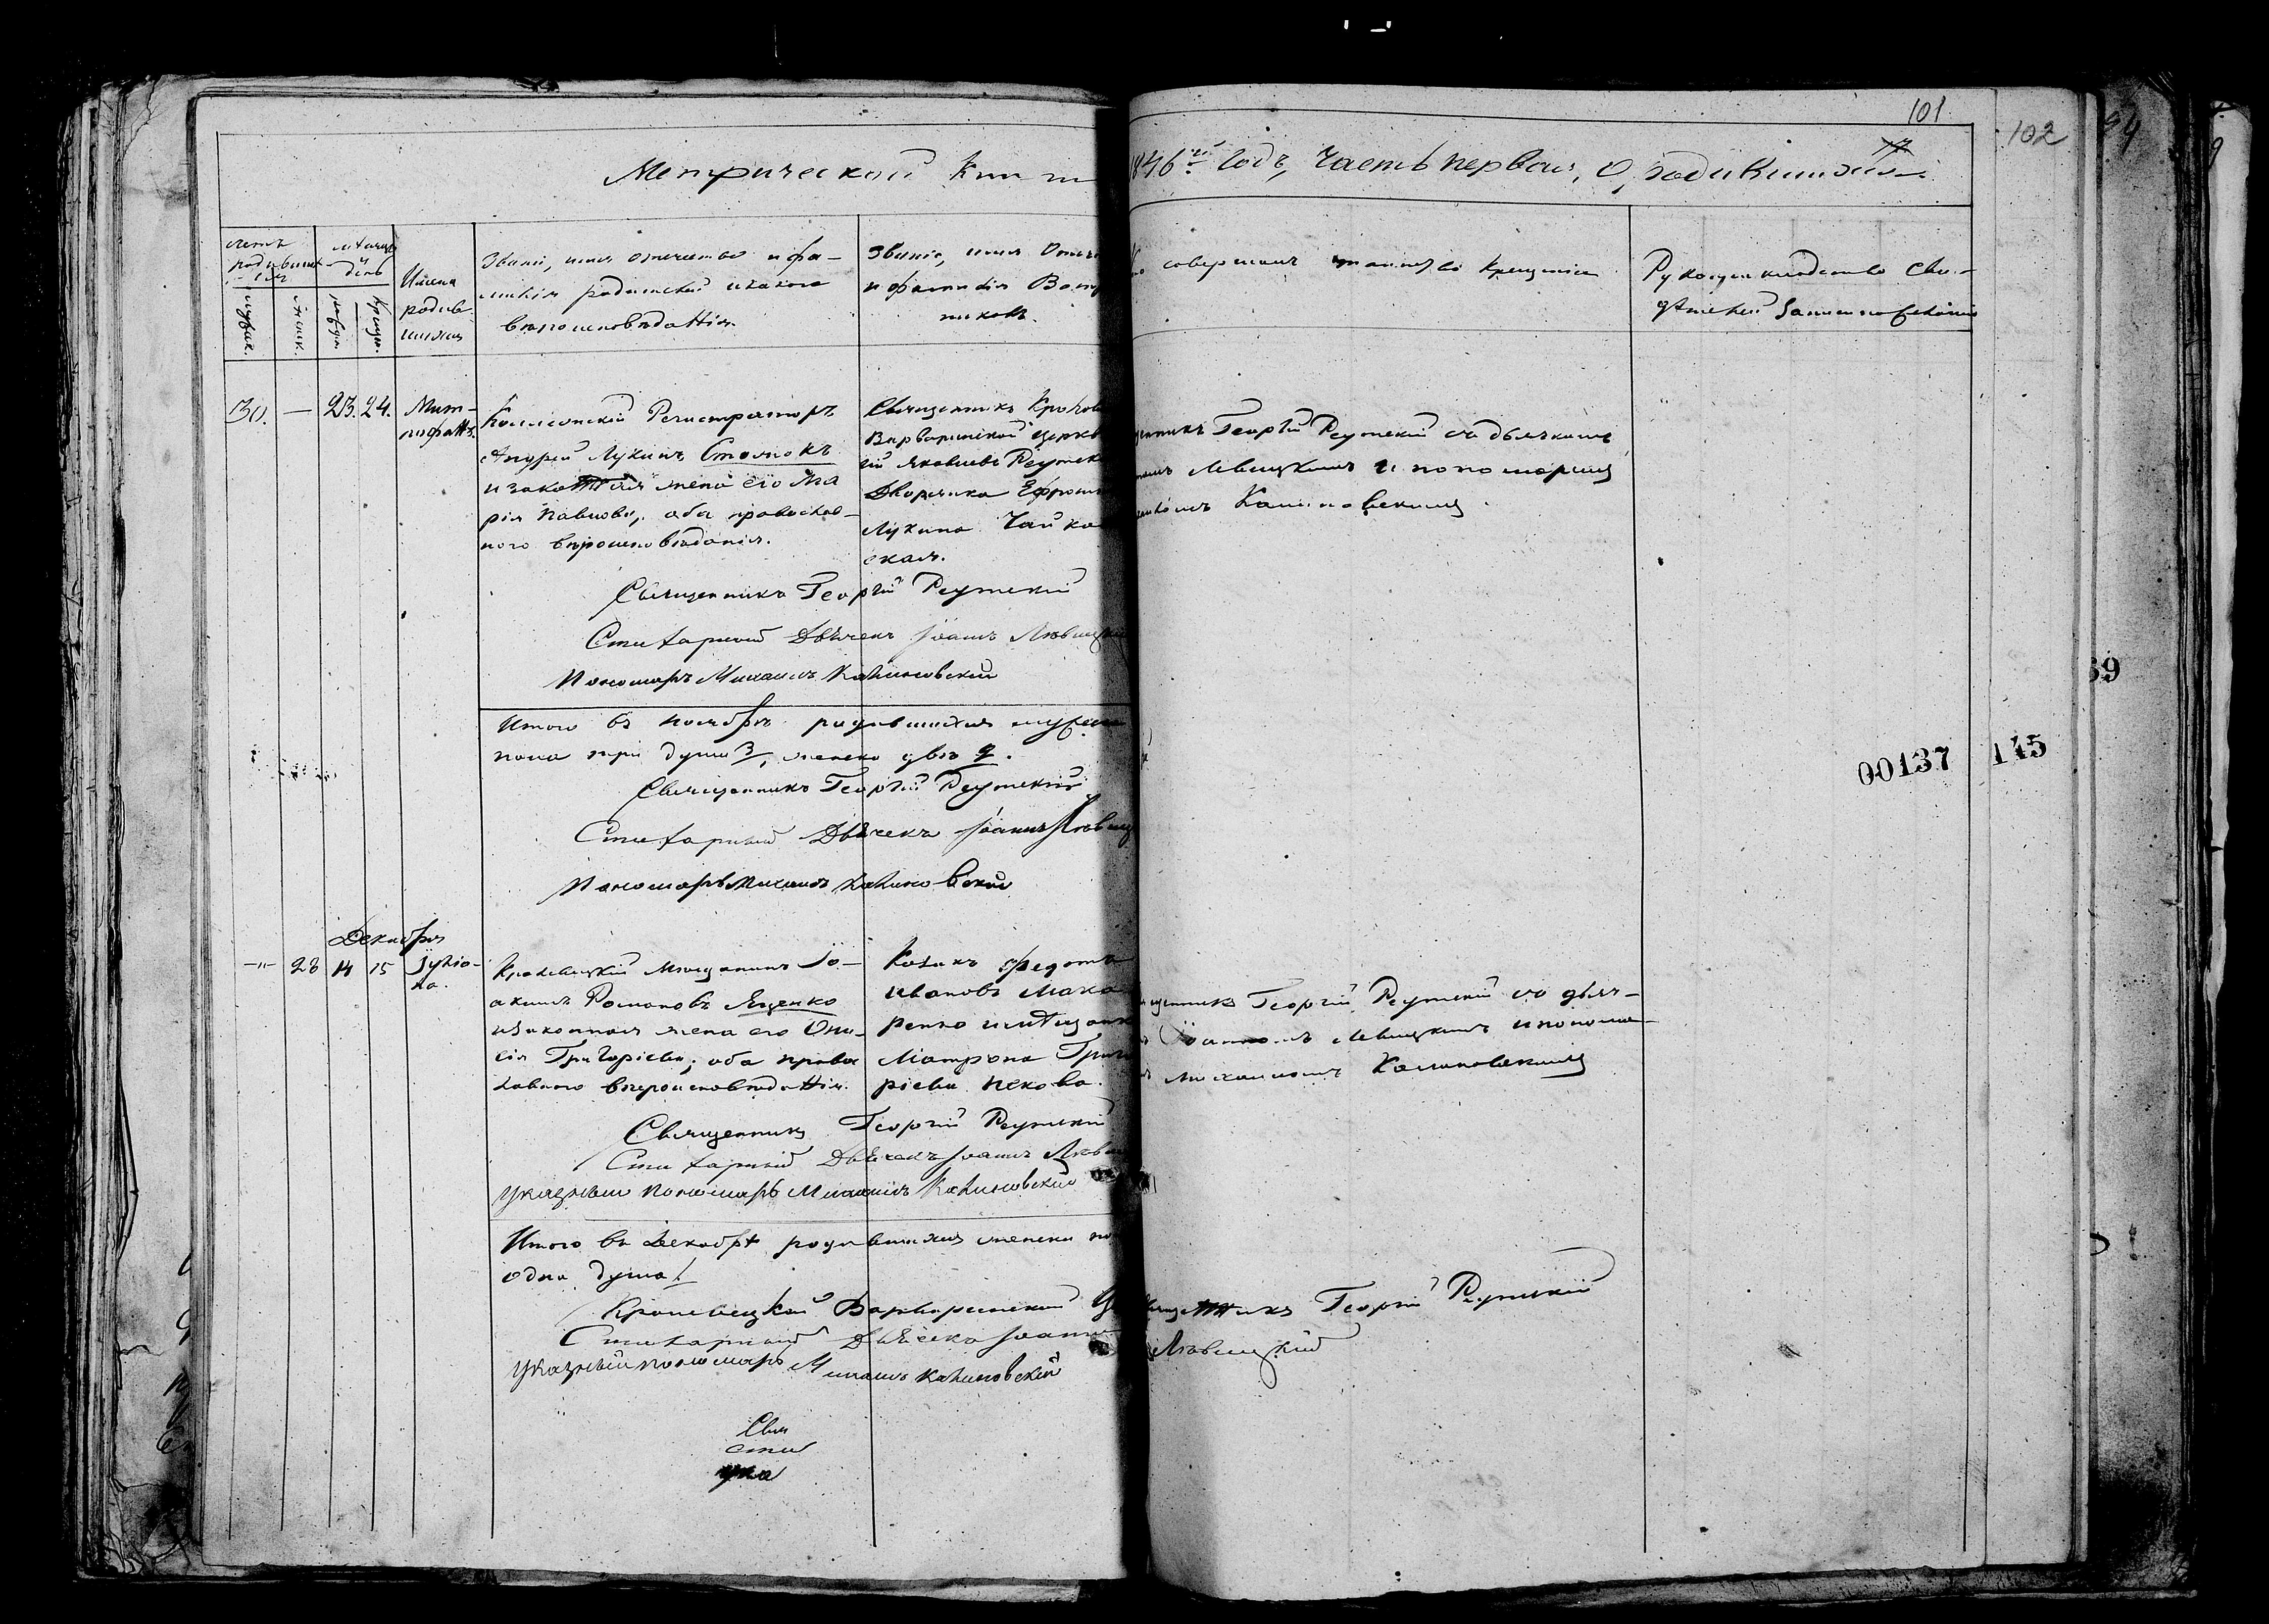 101
102
Метрической Кни
1846й Годъ, Часть первая, О, родившихся
Счетъ родившихся
мѣсяцъ и день
мужск.
женск.
рожд.
крещен.
Имена родив-
шихся
Званіе, имя отчество и фа-
милія родителей и какого
вѣроисповѣданія.
Званіе, имя Отче
и фамилія Воспр
никовъ.
совершалъ таинство крещенія
Рукоприкладство сви-
дѣтелей записи по желанію
30. — 23. 24. Мит-
рофанъ.
Коллежскій Регистраторъ
Андрей Лукинъ Стонокъ
и законная жена его Ма
рія Павлова, оба православ-
наго вѣроисповѣданія.
Священникъ Кролев
Варваринской церкв
гій Яковлевъ Реутск
Дворянка Ефрос
Лукина Чайков
ская.
щенникъ Георгій Реутскій съ дьячкомъ
Левицкимъ и пономаремъ
Калиновскимъ
Священникъ Георгій Реутскій
Стихарный Дьячекъ Іоаннъ Левицкій
Пономарь Михаилъ Калиновскій
Итого въ ноябрѣ родившихся мужеска
пола три души 3, женска двѣ 2.
Священникъ Георгій Реутскій
Стихарный Дьячекъ Іоаннъ Левиц
Пономарь Михаилъ Калиновскій
00137
145
39
Декабрь
—"— 28 14 15 Іуліа-
на.
Кролевецкій Мещанинъ Іо-
акимъ Романовъ Яценко
и законная жена его Они-
сія Григоріева; оба правос
лавнаго вѣроисповѣданія.
Козакъ Федотъ
Ивановъ Мака
ренко и мѣщанк
Матрона Григо
ріева Пекова.
щенникъ Георгій Реутскій съ дьяч-
Іоанномъ Левицкимъ и понома-
Михаиломъ Калиновскимъ
Священникъ Георгій Реутскій
Стихарный Дьячекъ Іоаннъ Леви
Указный пономарь Михаилъ Калиновскій
Итого въ Декабрѣ родившихся женска по
одна душа 1.
Кролевецкой Варваринской Ц
щенникъ Георгій Реутскій
Стихарный Дьячекъ Іоанн
Левицкій
Указный пономарь Михаилъ Калиновскій
Свя
сти
ука